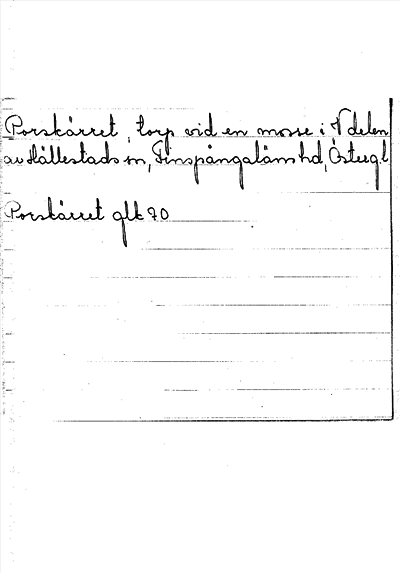 Porskärret, torp vid en mosse i V delen
av Hällestads sn, Finspångaläns hd, Östergl.
Porskärret glk 70